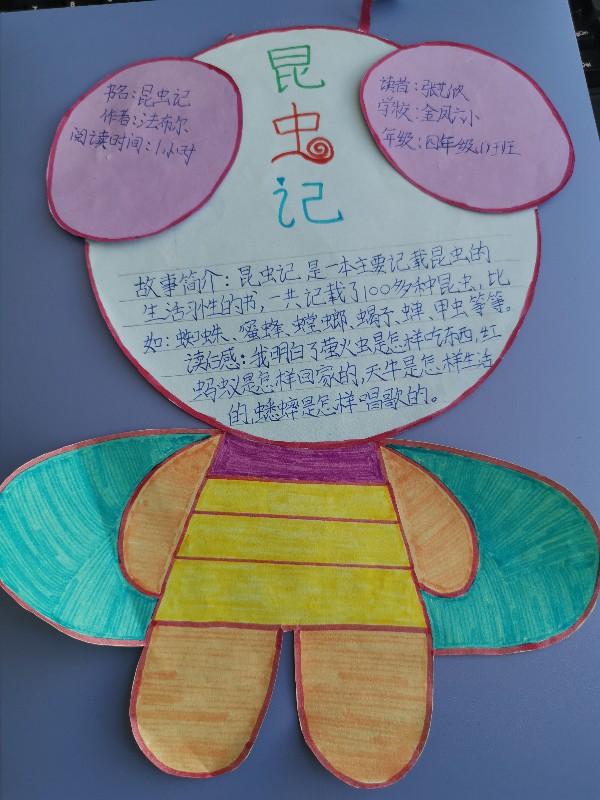 昆
虫
记
书名:昆虫记
作者:法布尔
阅读时间:1小时
读者:张
学校:金凤六小
年级:四年级(1)班
故事简介:昆虫记是一本主要记载昆虫的
生活习性的书,一共记载了100多种昆虫,比
如:蜘蛛、蜜蜂、螳螂、蝎子、蝉、甲虫等等。
读后感:我明白了萤火虫是怎样吃东西,红
蚂蚁是怎样回家的,天牛是怎样生活
的,蟋蟀是怎样唱歌的。